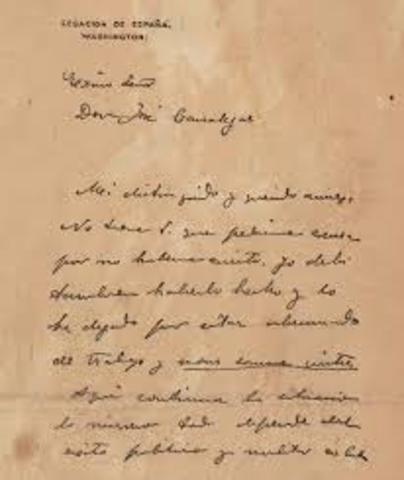 LEGACION DE ESPAÑA.
WASHINGTON.
Excmo Señor
Don José Canalejas
Mi distinguido y querido amigo,
No tiene V. que pedirme excusa
por no haberme escrito. Yo debí
también haberlo hecho y lo
he dejado por estar abrumado
de trabajo y
Aquí continua la situación
lo mismo. Todo depende del
éxito político y militar en Cuba